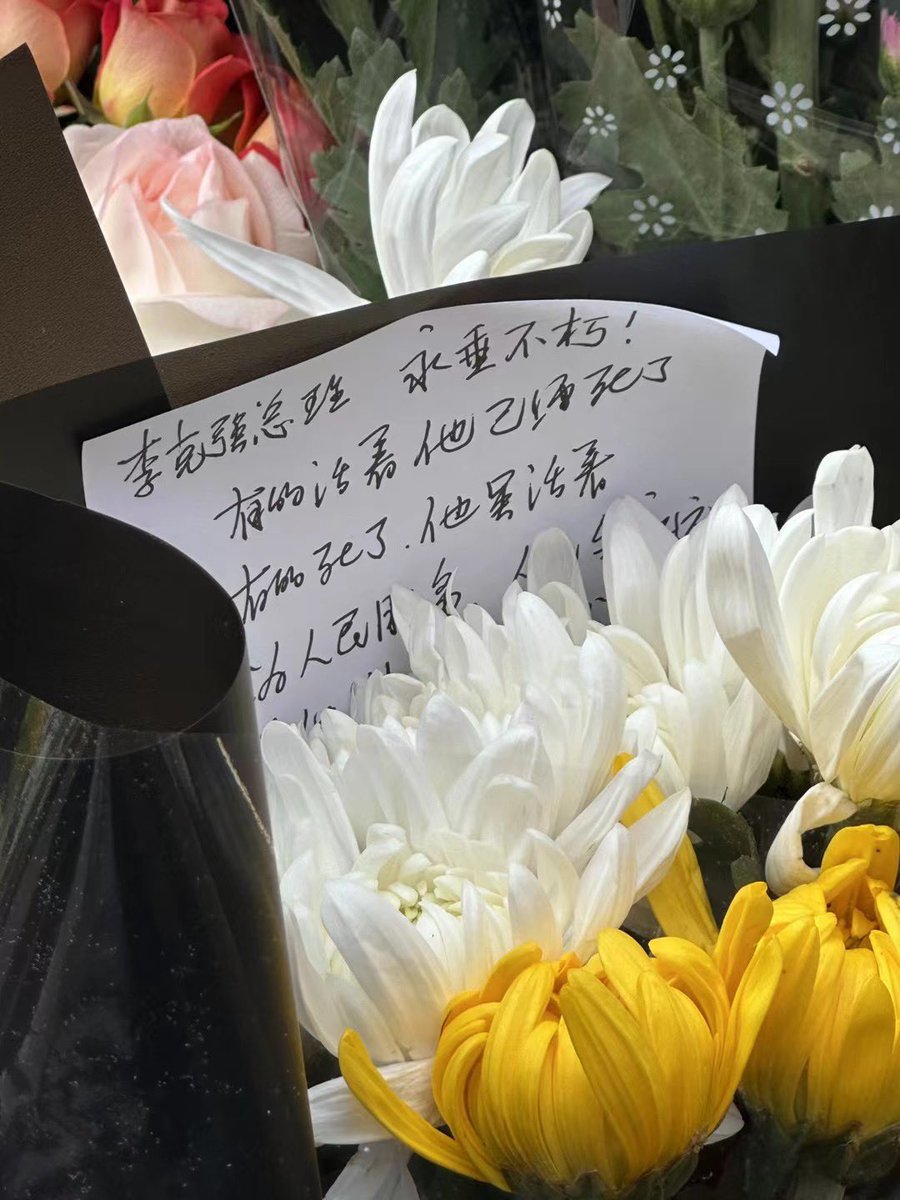 李克强总理 永垂不朽!
有的活着他已经死了
有的死了.他还活着
为人民服务